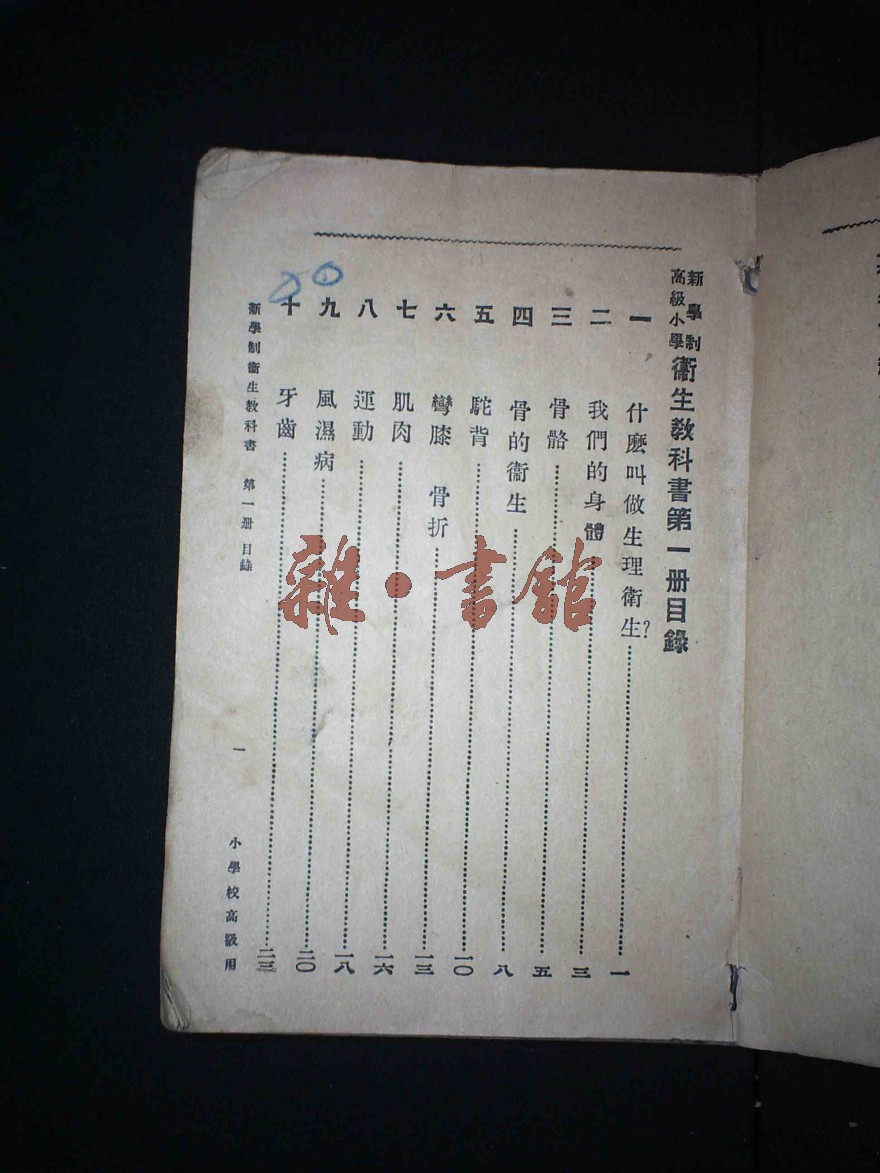 新學制高級小學衞生教科書第一册目錄
一 什麽叫做生理衞生?……一
二 我們的身體……三
三 骨骼……五
四 骨的衞生……八
五 駝背……一〇
六 彎膝 骨折……一三
七 肌肉……一六
八 運動……一八
九 風濕病……二〇
十 牙齒……二三
新學制衞生教科書 第一册 目錄
一
小學校高級用
雜·書館